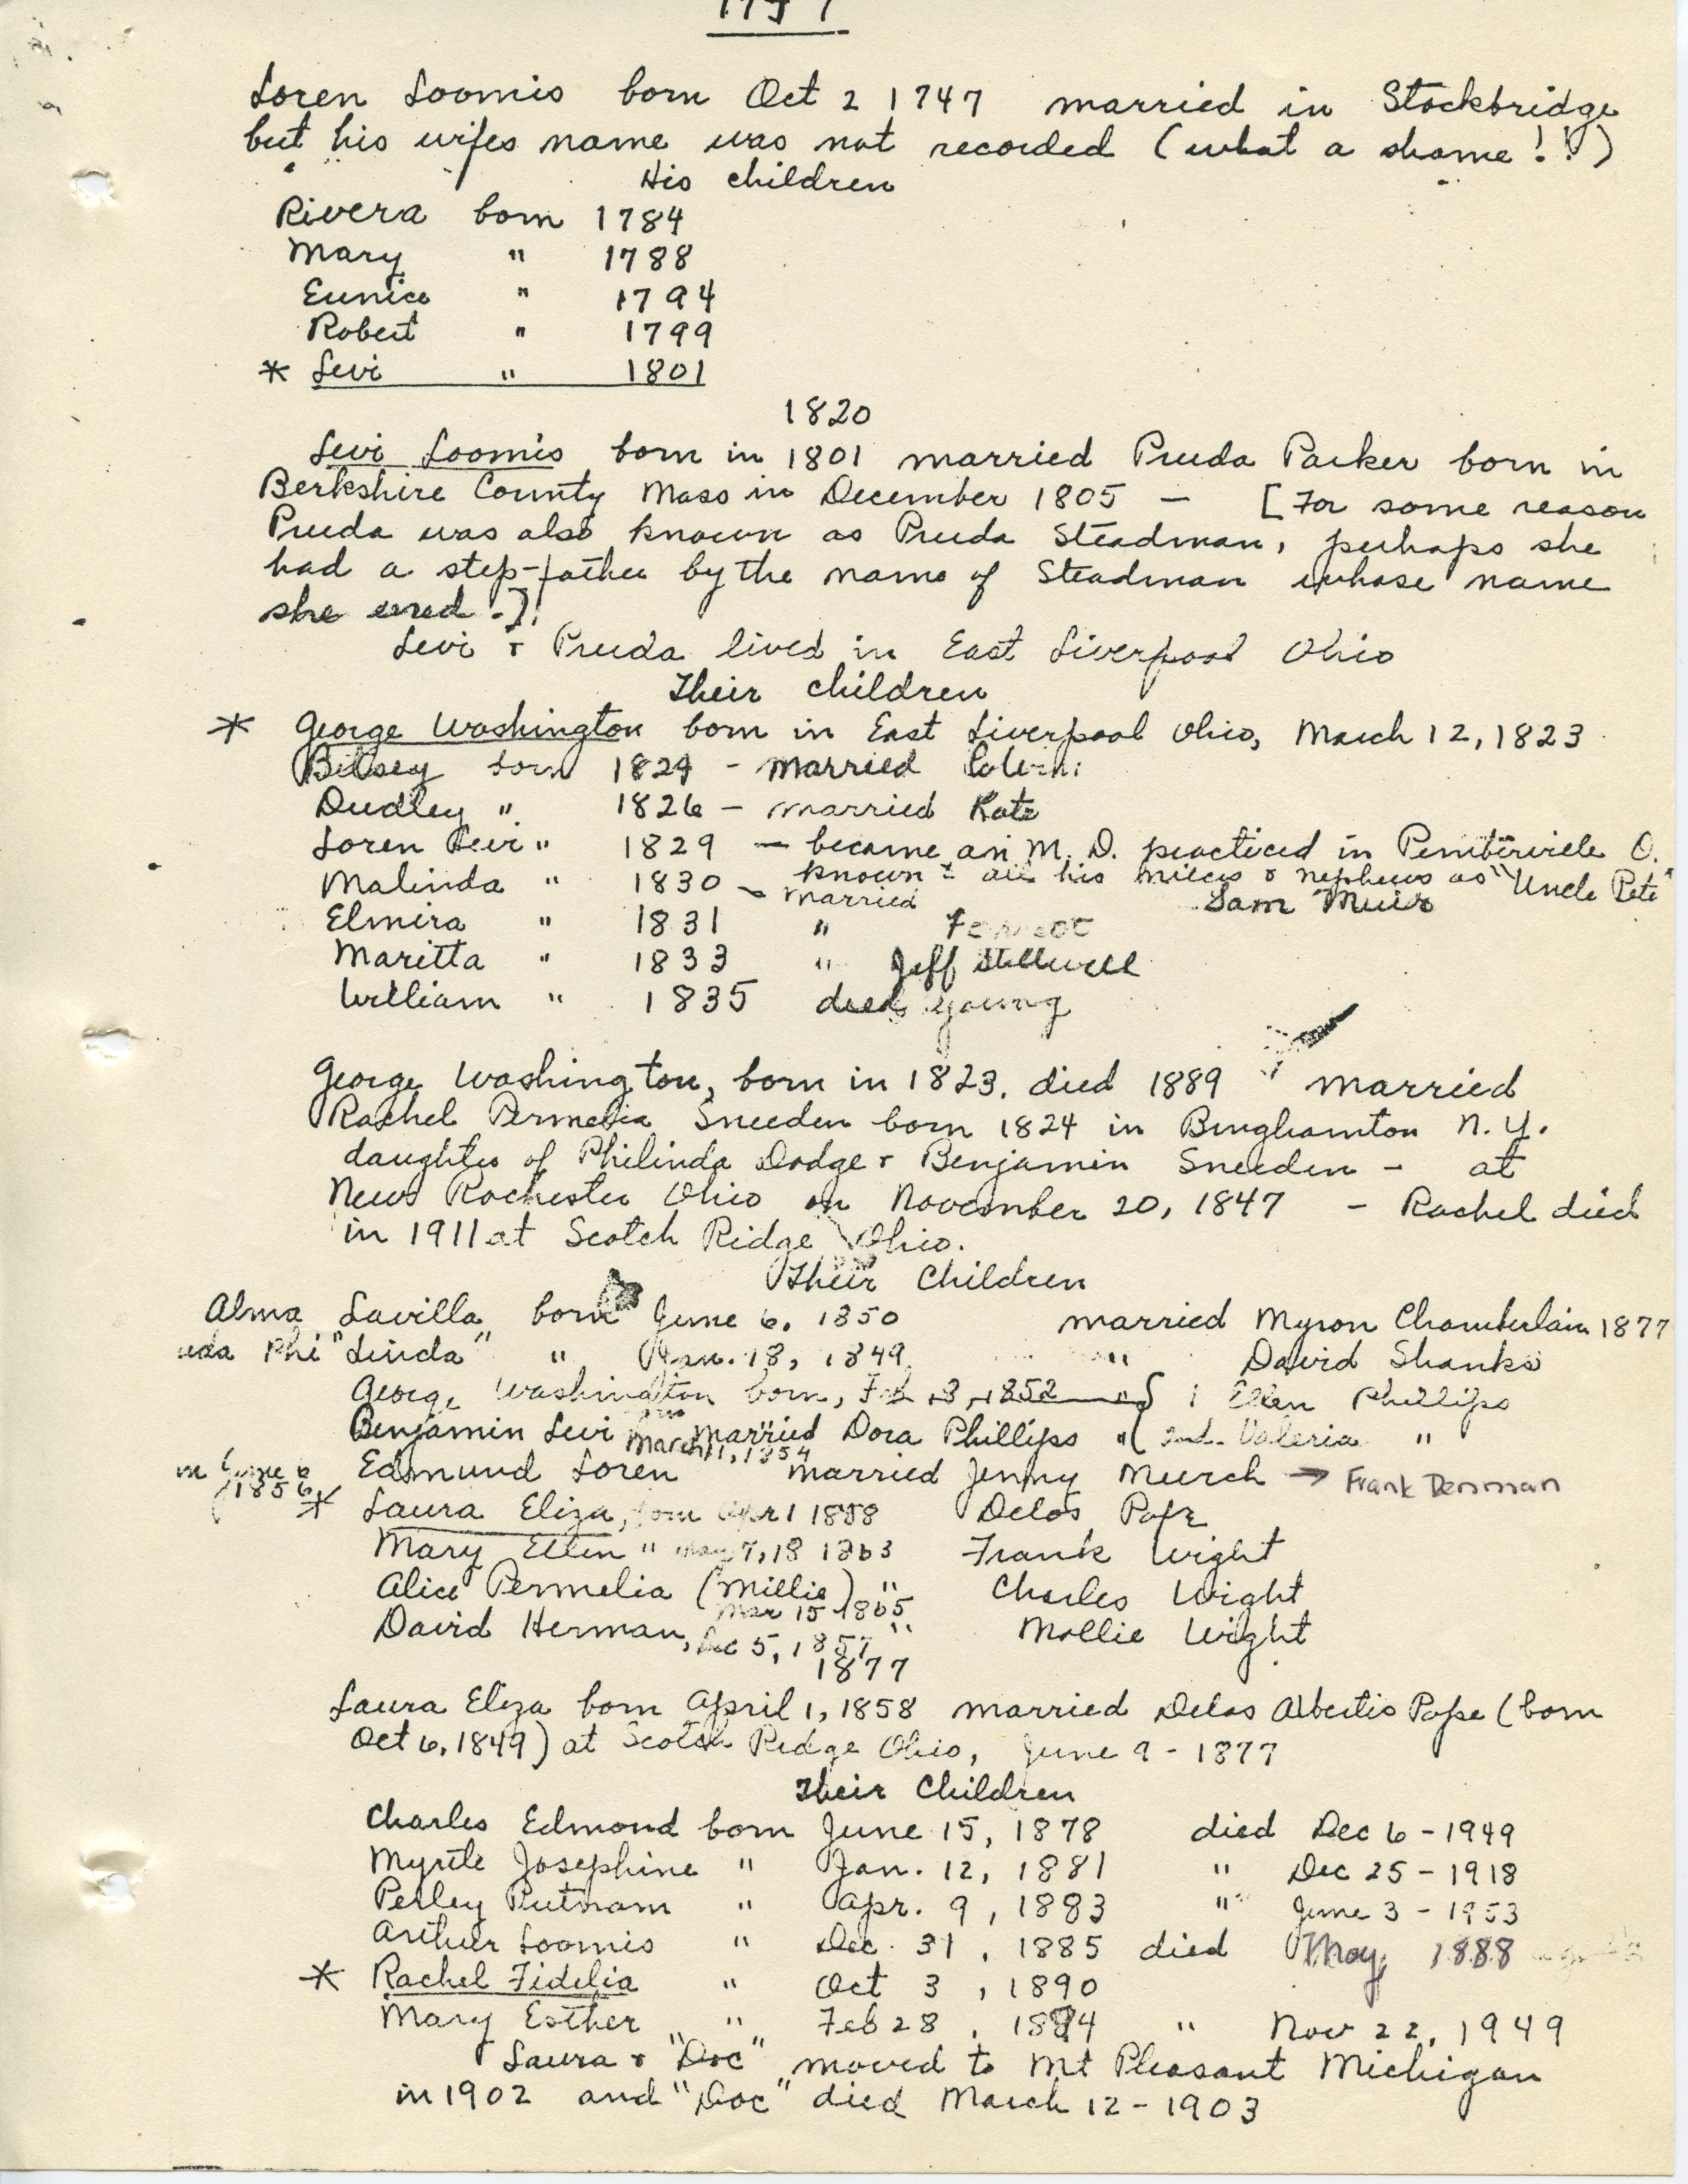 Loren Loomis born Oct 2 1747 married in Stockbridge
but his wifes name was not recorded (what a shame!!)
His children
Rivera born 1784
Mary " 1788
Eunice " 1794
Robert " 1799
* Levi " 1801
1820
Levi Loomis born in 1801 married Pruda Parker born in
Berkshire County Mass in December 1805 — [For some reason
Pruda was also known as Pruda Steadman, perhaps she
had a step-father by the name of Steadman whose name
she used.]
Levi & Pruda lived in East Liverpool Ohio
Their children
* George Washington born in East Liverpool Ohio, March 12, 1823
Betsey born 1824 - married
Dudley " 1826 - married Kate
Loren Levi " 1829 — became an M.D. practiced in Pemberville O.
known all his nieces & nephews as "Uncle Pete"
Malinda " 1830 - married Sam Muir
Elmira " 1831 "
Maritta " 1833 " Jeff Stillwell
William " 1835 died young
George Washington, born in 1823, died 1889 married
Rachel Permelia Sneeden born 1824 in Binghamton N.Y.
daughter of Philinda Dodge & Benjamin Sneeden - at
New Rochester Ohio on November 20, 1847 - Rachel died
in 1911 at Scotch Ridge Ohio.
Their Children
Alma Lavilla born June 6, 1850 married Myron Chamberlain 1877
Phi "Linda" " Jan. 18, 1849 " David Shanks
George Washington born, Feb 3, 1852 " { Ellen Phillips
Benjamin Levi married Dora Phillips " ( 2nd. Valeria "
March 11, 1854
Edmund Loren married Jenny Murch → Frank Denman
June 6
1856
* Laura Eliza, born Apr 1 1858 Delos Pope
Mary Ellen " May 7, 18 1863 Frank Wight
Alice Permelia (Millie) " Charles Wight
Mar 15 1865
David Herman, " Mollie Wight
Dec 5, 1857
1877
Laura Eliza born April 1, 1858 married Delos Albertis Pope (born
Oct 6, 1849) at Scotch Ridge Ohio, June 9 - 1877
Their Children
Charles Edmond born June 15, 1878 died Dec 6 - 1949
Myrtle Josephine " Jan. 12, 1881 " Dec 25 - 1918
Perley Putnam " Apr. 9, 1883 " June 3 - 1953
Arthur Loomis " Dec. 31, 1885 died May, 1888
* Rachel Fidelia " Oct 3, 1890
Mary Esther " Feb 28, " Nov 22, 1949
Laura & "Doc" moved to Mt Pleasant Michigan
in 1902 and "Doc" died March 12 - 1903